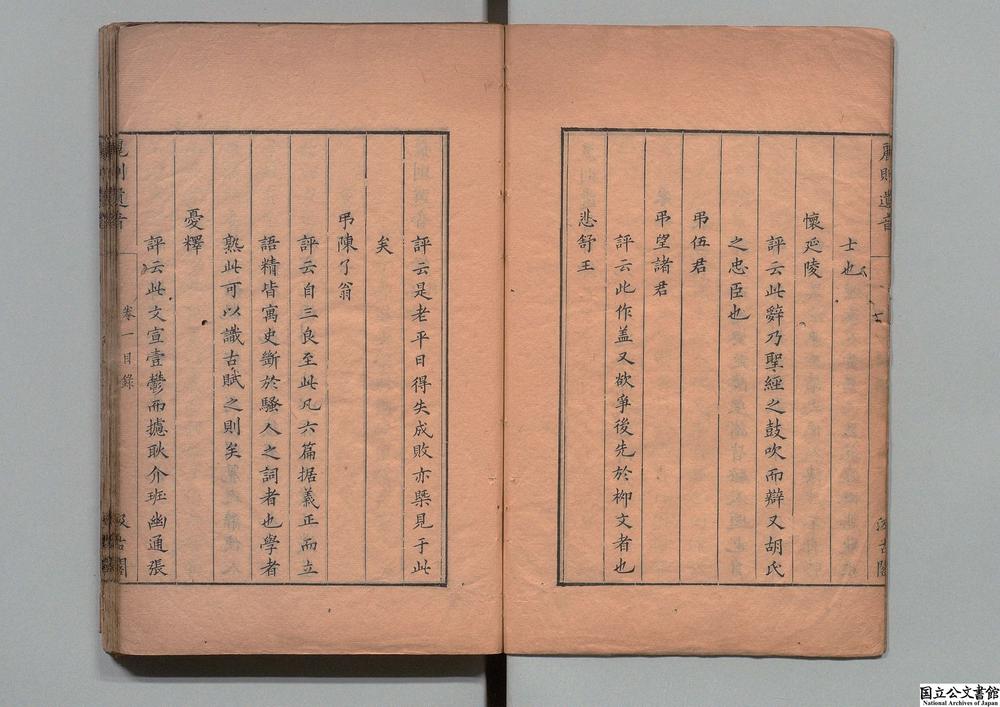 麗則遺音
士也
懷延陵
評云此辭乃聖經之鼓吹而辯又胡氏
之忠臣也
弔伍君
弔望諸君
評云此作盖又欲爭後先於柳文者也
悲舒王
評云是老平日得失成敗亦槩見于此
矣
弔陳了翁
評云自三良至此凡六篇据義正而立
語精皆寓史斷於騷人之詞者也學者
熟此可以識古賦之則矣
憂釋
評云此文宣壹鬱而攄耿介班幽通張
麗則遺音
卷一目錄
汲古閣
国立公文書館
National Archives of Japan